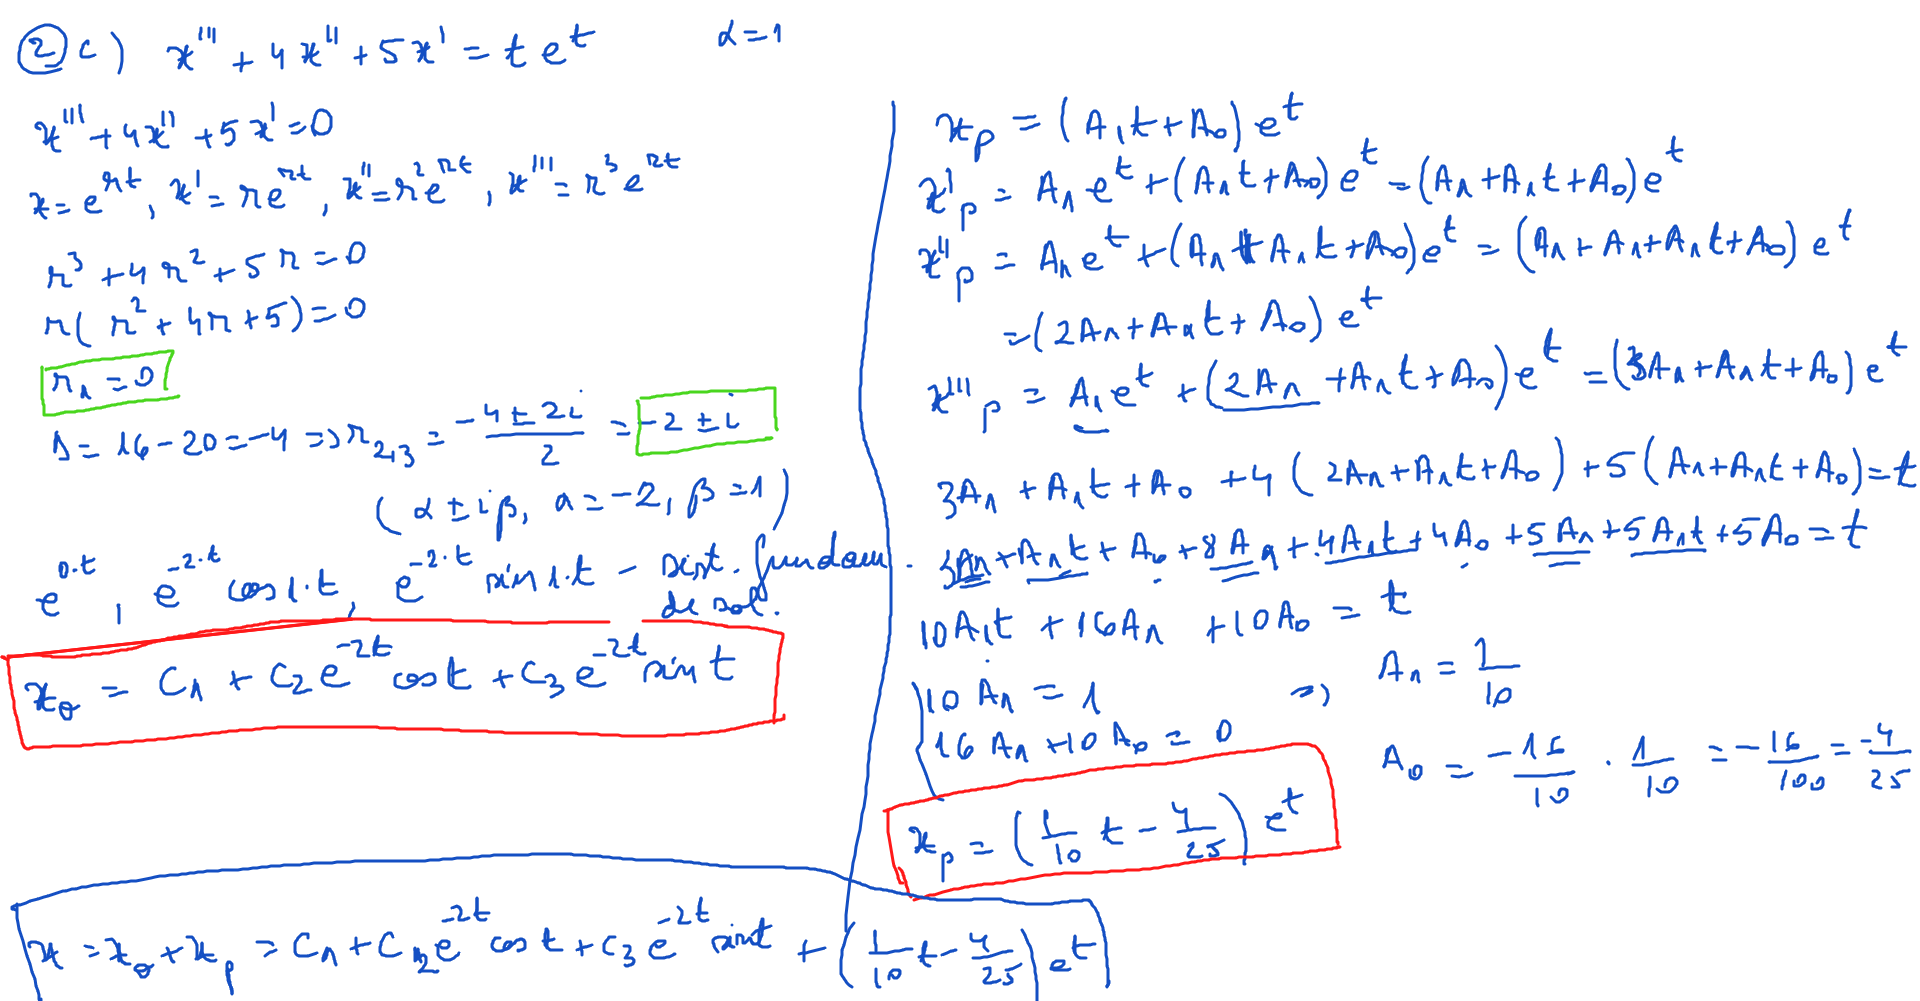 ② c) x''' + 4x'' + 5x' = t e^t     α = 1
x''' + 4x'' + 5x' = 0
x = e^{rt}, x' = re^{rt}, x'' = r^2 e^{rt}, x''' = r^3 e^{rt}
r^3 + 4r^2 + 5r = 0
r( r^2 + 4r + 5) = 0
r_1 = 0
Δ = 16 - 20 = -4 => r_{2,3} = \frac{-4 ± 2i}{2} = -2 ± i
( α ± iβ, a = -2, β = 1 )
e^{0·t}, e^{-2·t} cos 1·t, e^{-2·t} sin 1·t - sist. fundam.
de sol.
x_0 = C_1 + C_2 e^{-2t} cos t + C_3 e^{-2t} sin t
x_p = (A_1 t + A_0) e^t
x'_p = A_1 e^t + (A_1 t + A_0) e^t = (A_1 + A_1 t + A_0) e^t
x''_p = A_1 e^t + (A_1 + A_1 t + A_0) e^t = (A_1 + A_1 + A_1 t + A_0) e^t
= (2A_1 + A_1 t + A_0) e^t
x'''_p = A_1 e^t + (2A_1 + A_1 t + A_0) e^t = (3A_1 + A_1 t + A_0) e^t
3A_1 + A_1 t + A_0 + 4 ( 2A_1 + A_1 t + A_0 ) + 5 ( A_1 + A_1 t + A_0) = t
3A_1 + A_1 t + A_0 + 8A_1 + 4A_1 t + 4A_0 + 5A_1 + 5A_1 t + 5A_0 = t
10A_1 t + 16A_1 + 10A_0 = t
10 A_1 = 1 => A_1 = \frac{1}{10}
16 A_1 + 10 A_0 = 0     A_0 = \frac{-16}{10} · \frac{1}{10} = -\frac{16}{100} = \frac{-4}{25}
x_p = ( \frac{1}{10} t - \frac{4}{25} ) e^t
x = x_0 + x_p = C_1 + C_2 e^{-2t} cos t + C_3 e^{-2t} sin t + ( \frac{1}{10} t - \frac{4}{25} ) e^t